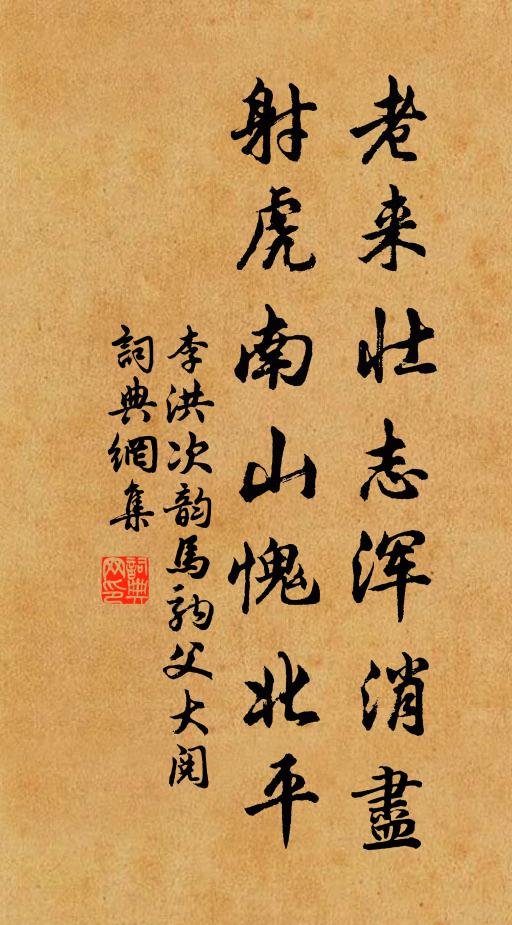 老来壮志浑消盡
射虎南山愧北平
李洪次韵馬驹父大阅
詞典網集
詞典网印